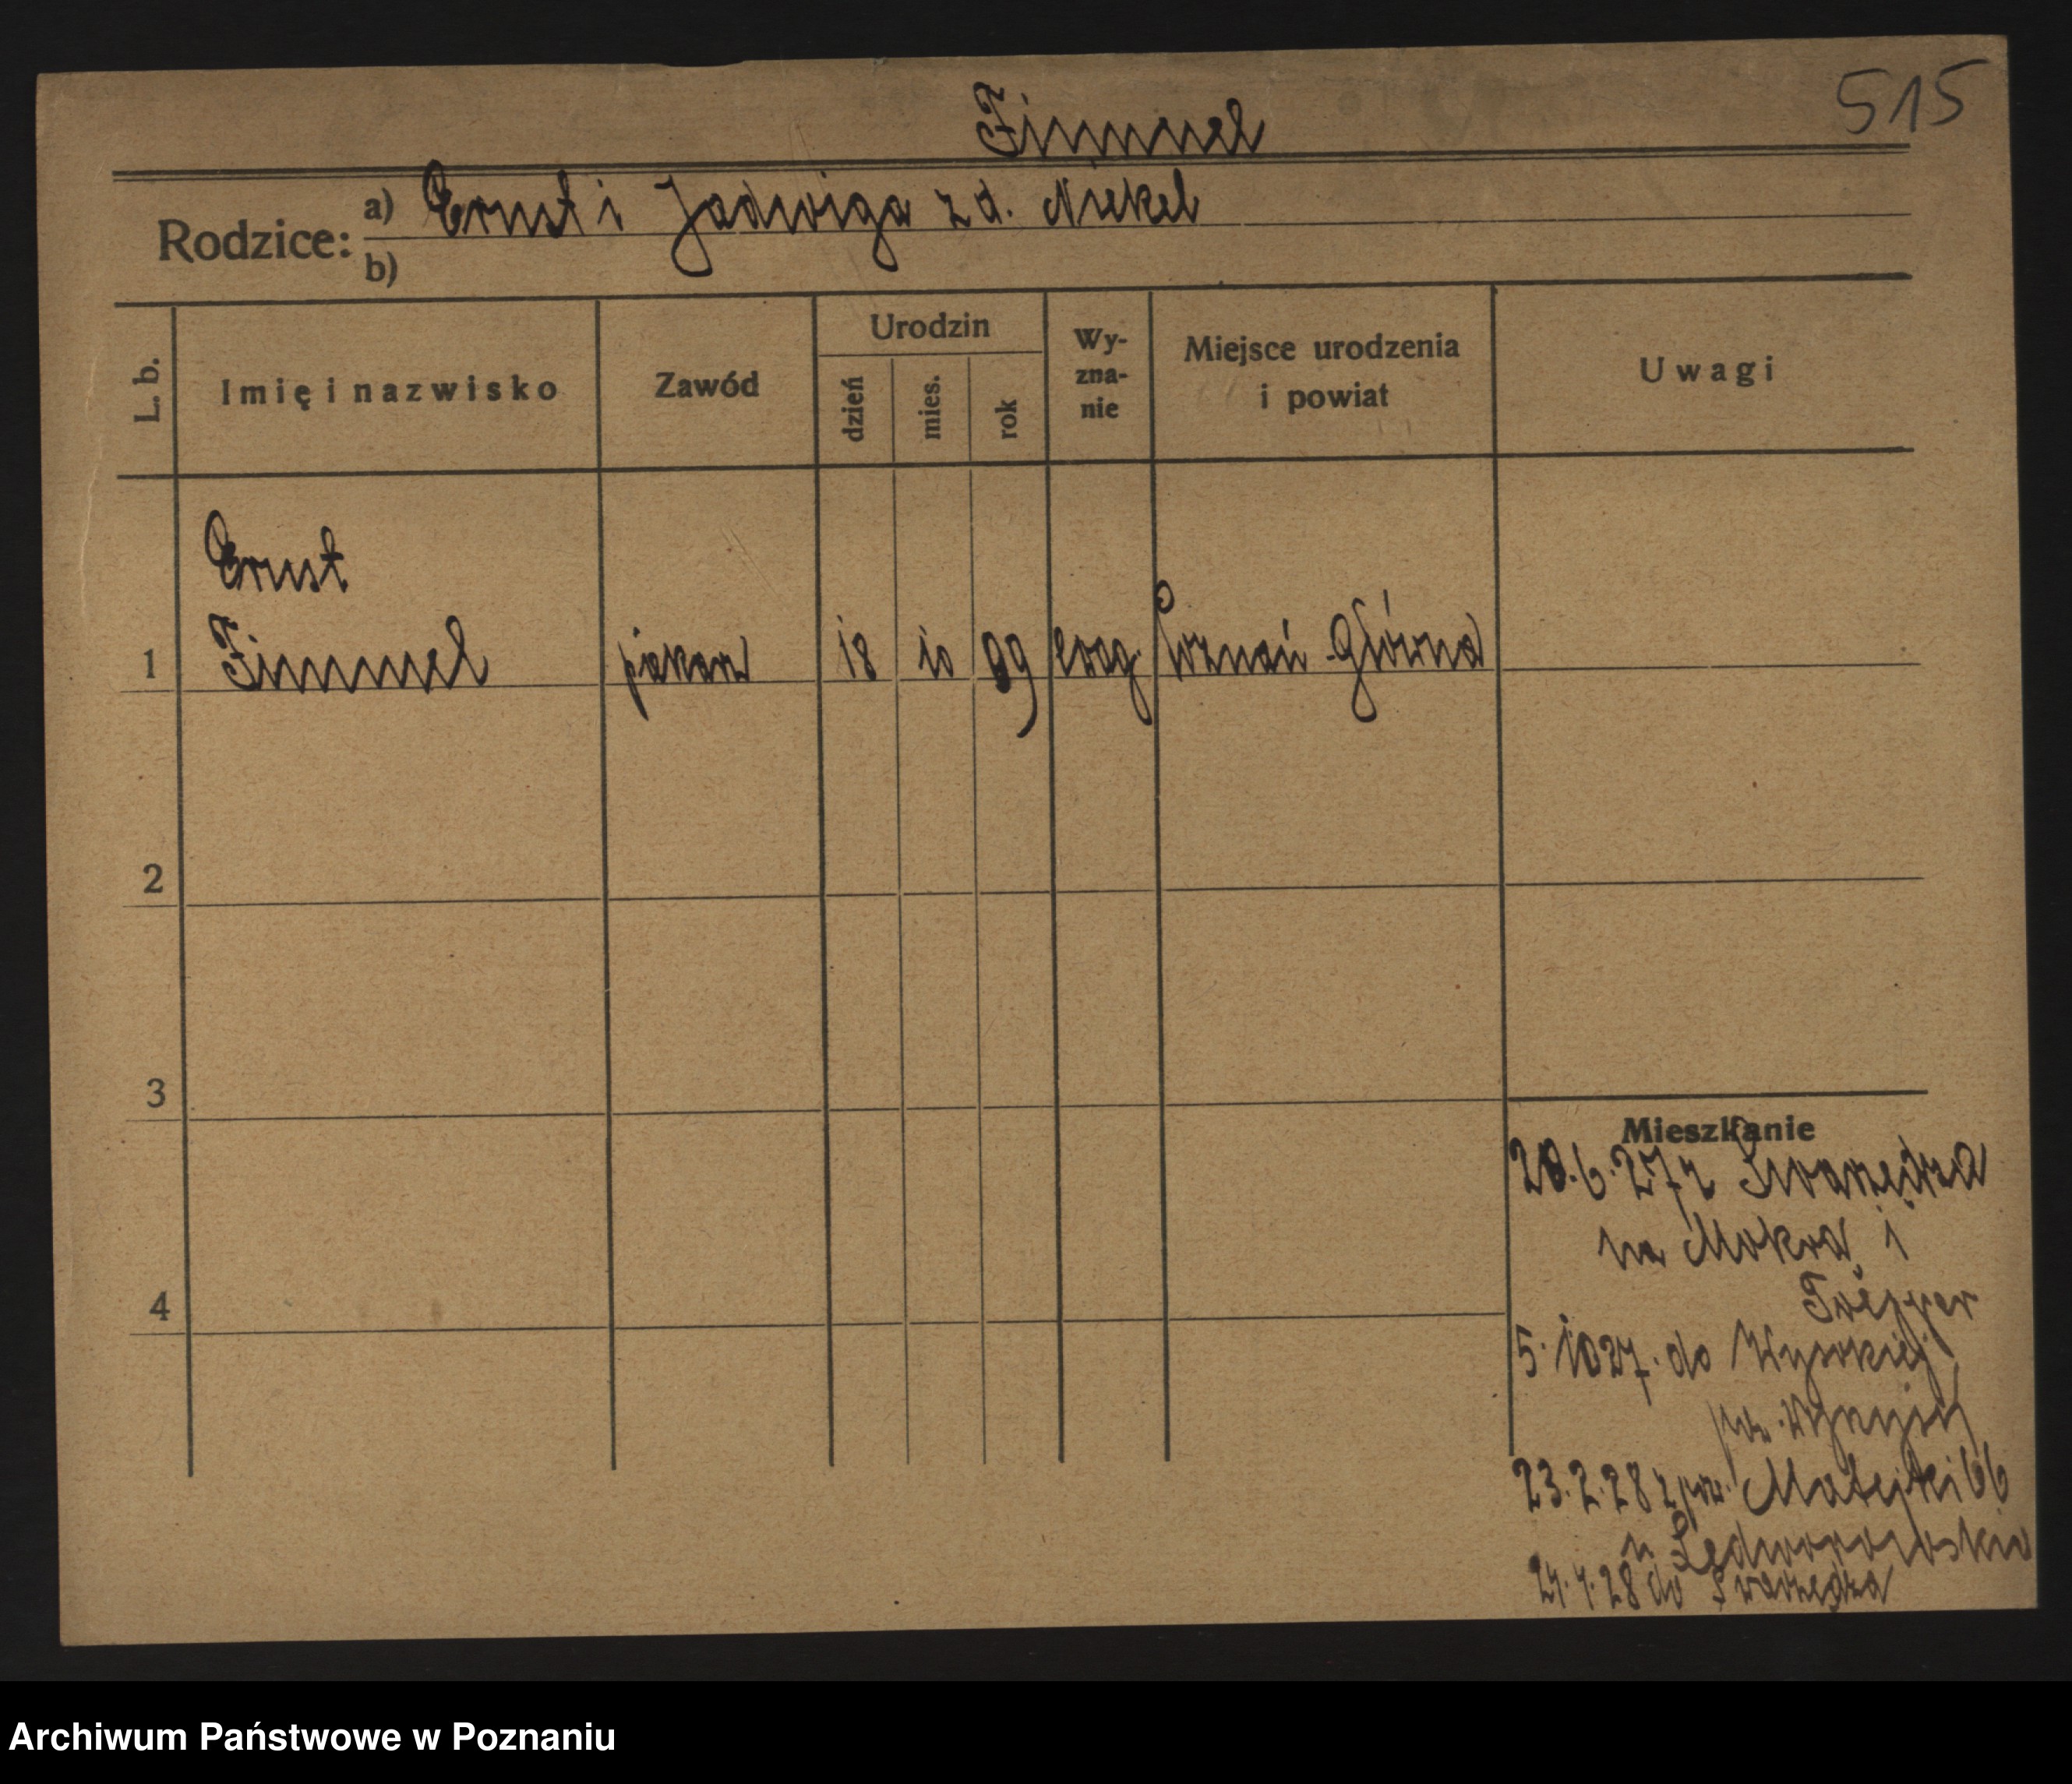 515
Fimmel
Rodzice: a) Ernst i Jadwiga z d. Nickel
b)
L. b.
Imię i nazwisko
Zawód
Urodzin
dzień
mies.
rok
Wy-
zna-
nie
Miejsce urodzenia
i powiat
Uwagi
Ernst
1 Fimmel piekarz 18 10 99 ewag. Poznań-Główna
2
3
4
Mieszkanie
28.6.27 z Swarzędza
na Mokra 1
5.10 27. do Wysokiej
pow.
23.2.28 z pow. Matejki 66
u
24.4.28 do Swarzędza
Archiwum Państwowe w Poznaniu